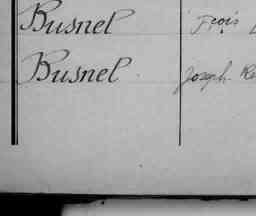 Busnel Frçois
Busnel Joseph Re